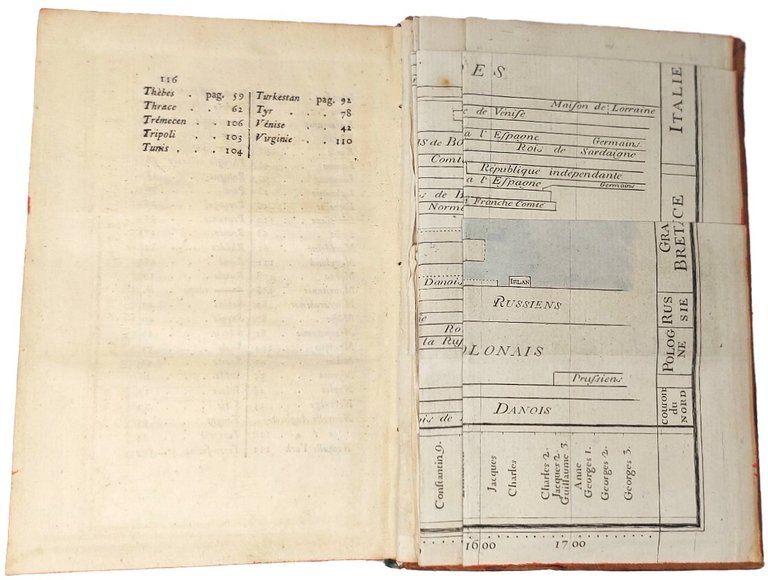 116
Thèbes . pag. 59
Thrace . . 62
Trémecen . . 106
Tripoli . . 103
Tunis . . . 104
Turkestan pag. 92
Tyr . . . 78
Vénise . . . 42
Virginie . . 110
ES
ITALIE
Maison de Lorraine
e de Venise
a l'Espagne Germains
is de Bo
Rois de Sardaigne
Comt
République independante
a l'Espagne Germains
is de B
Norm
Franche Comté
GRA
BRETACE
Danois
IRLAN
RUSSIENS
RUS
SIE
Ro
la Rus
OLONAIS
POLOG
NE
Prussiens
ois de
DANOIS
couron
du
NORD
Constantin 9.
Jacques
Charles
Charles 2.
Jacques 2.
Guillaume 3.
Anne
Georges 1.
Georges 2.
Georges 3.
1600
1700